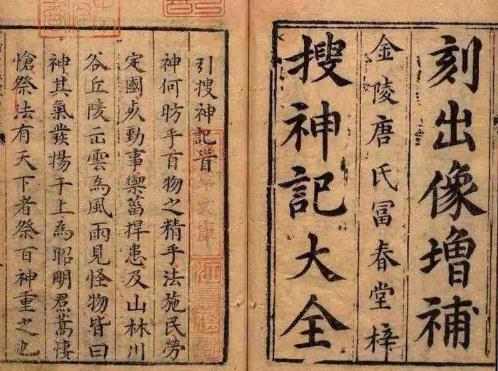 刻出像增補
金陵唐氏富春堂梓
搜神記大全
引搜神記首
神何昉乎百物之精乎法施民勞
定國乆勤事禦菑捍患及山林川
谷丘陵云雲為風雨見怪物皆曰
神其氣發揚于上為昭明焄蒿悽
愴祭法有天下者祭百神重之也